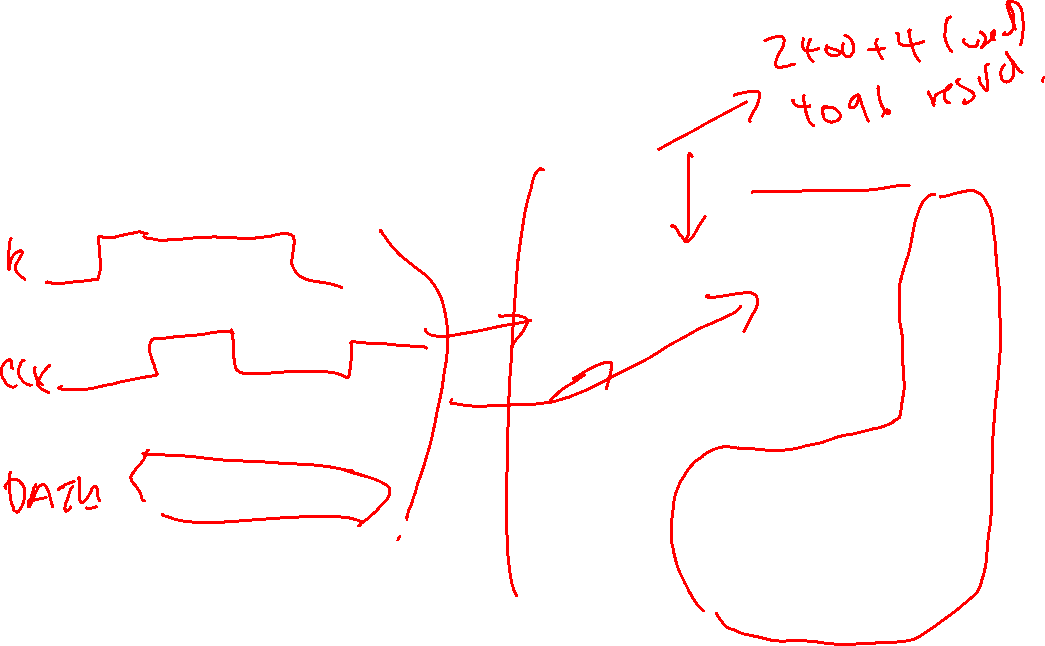 2400 + 4 (used)
4096 resvd.
R
CCK
DATA